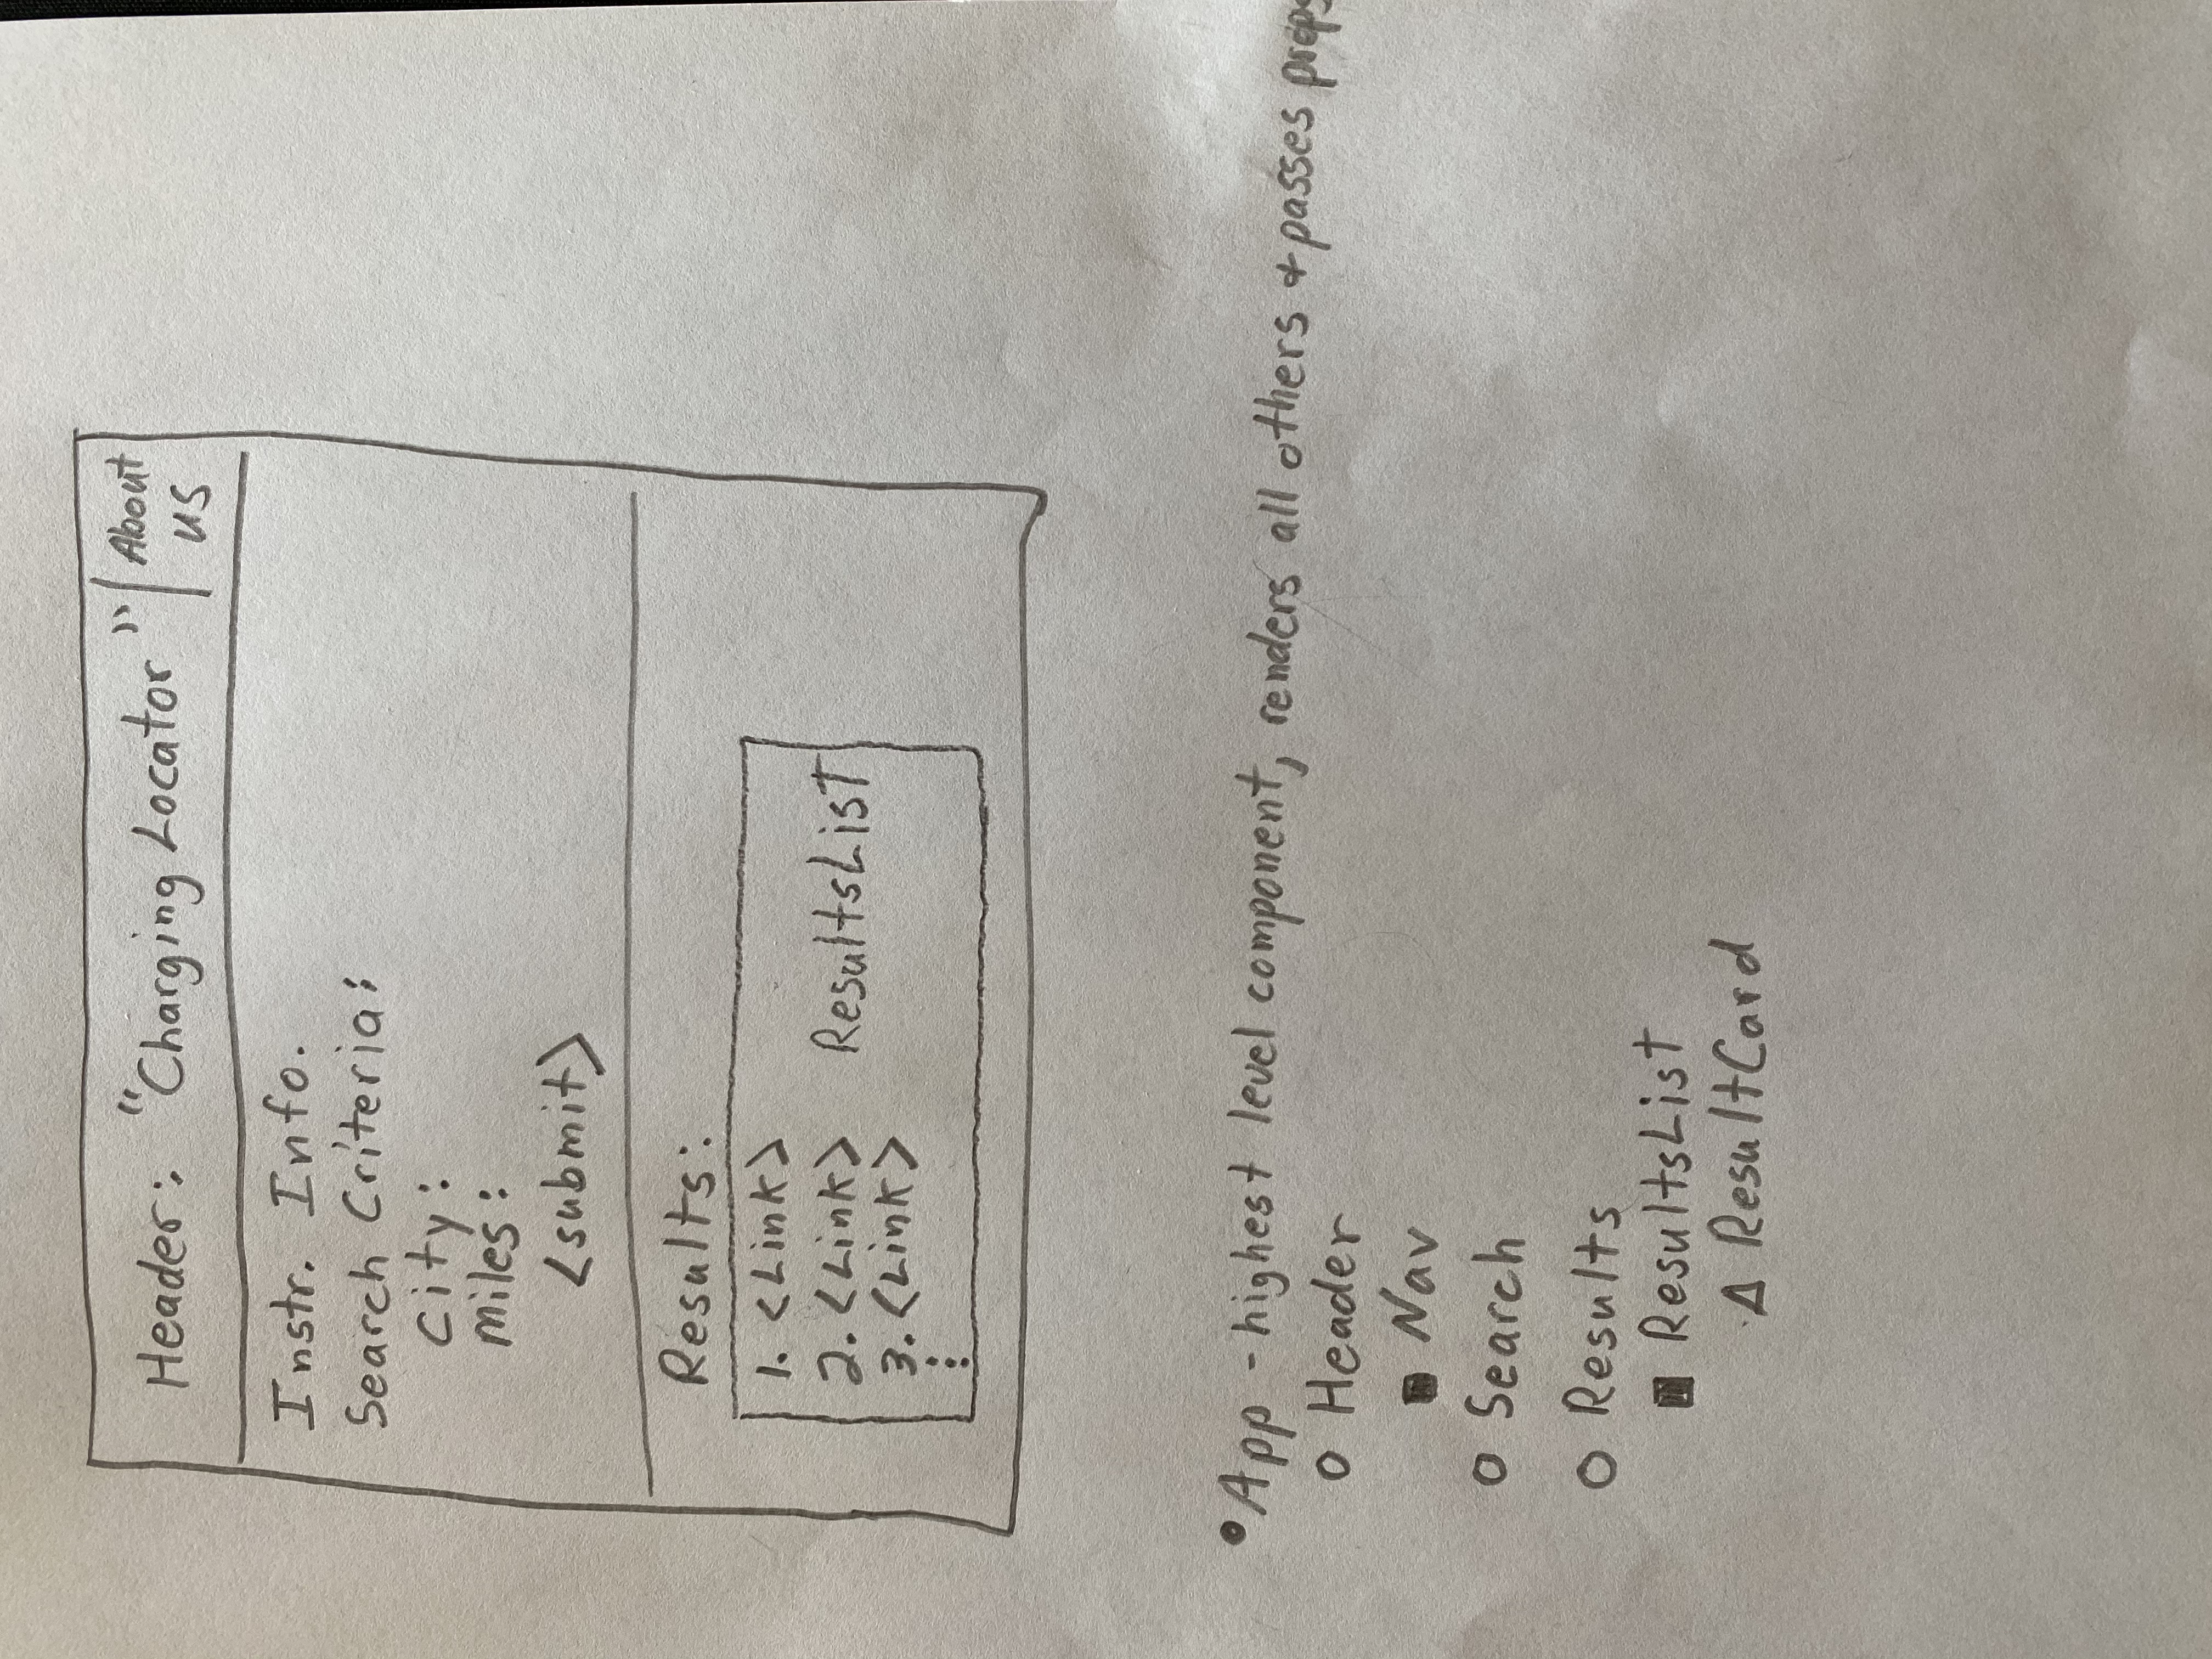 Header: "Charging Locator" | About us
Instr. Info.
Search Criteria:
City:
miles:
<submit>
Results:
1. <Link>
2. <Link> ResultsList
3. <Link>
⋮
• App - highest level component, renders all others & passes props
○ Header
■ Nav
○ Search
○ Results
■ ResultsList
△ ResultCard